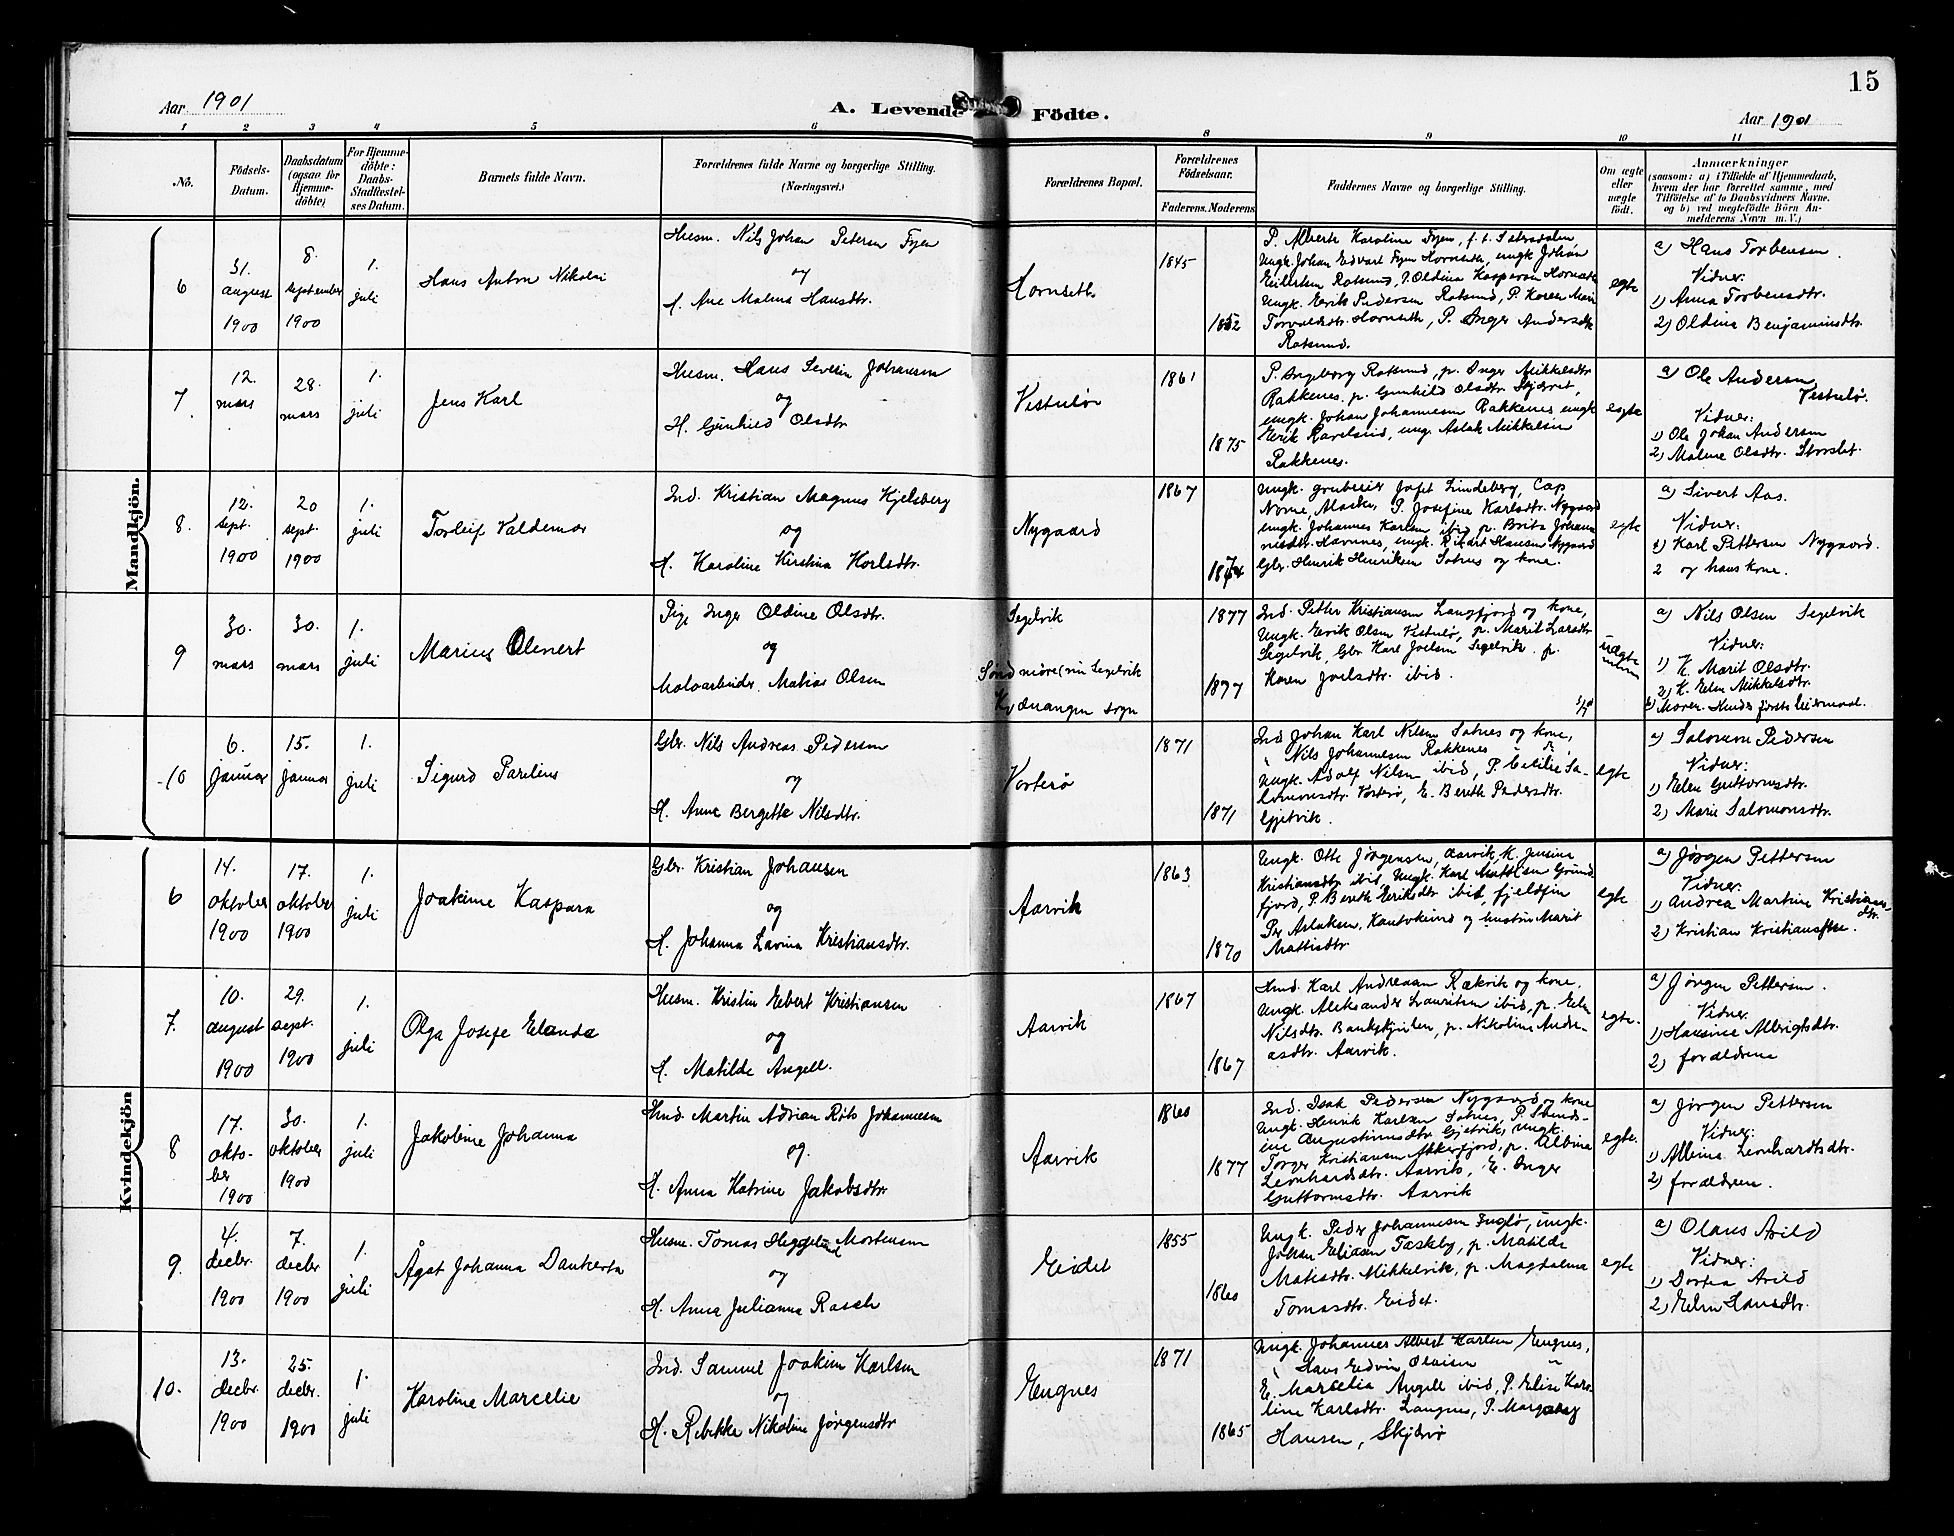 15
Aar 1901
A. Levende Födte.
Aar 1901
1 2 3 4 5 6 8 9 10 11
No.
Födsels-
Datum.
Daabsdatum
(ogsaa for
Hjemme-
döbte)
For Hjemme-
döbte:
Daabs-
Stadfæstel-
ses Datum.
Barnets fulde Navn.
Forældrenes fulde Navne og borgerlige Stilling.
(Næringsvei.)
Forældrenes Bopæl.
Forældrenes
Födselsaar.
Faderens. Moderens
Faddernes Navne og borgerlige Stilling.
Om ægte
eller
uægte
födt.
Anmærkninger
(saasom: a) i Tilfælde af Hjemmedaab,
hvem der har forrettet samme, med
Tilföielse af to Daabsvidners Navne.
og b) ved uægtefödte Börn An-
melderens Navn m. V.)
Mandkjön.
6
31.
august
1900
8.
september
1900
1.
juli
Hans Anton Nikolai
Husm. Nils Johan Petersen Fyen
og
H. Ane Malena Hansdtr.
Hornseth
1845
1852
P. Alberte Karoline Fyen,
Ungk. Johan Edvart Fyen Hornseth, ungk Johan
Rotsund, P. Oldina Kaspara Hornseth
Ungk. Erik Pedersen Rotsund, P. Karen Marie
Torvaldsdtr. Hornseth, P. Inger Andersdtr
Rotsund.
egte
a) Hans Torbensen.
Vidner:
1) Anna Torbensdtr.
2) Oldina Benjaminsdtr.
7
12.
mars
28.
mars
1.
juli
Jens Karl
Husm. Hans Severin Johansen
og
H. Gunhild Olsdtr
Vesterlø
1861
1875
P. Ingeborg Rotsund, p. Inger Mikkelsdtr
Rakkenes, p. Gunhild Olsdtr.
ungk. Johan Johannesen Rakkenes ungk
Erik ung. Aslak Mikkelsen
Rakkenes.
egte
a) Ole Andersen
Vesterlø.
Vidner:
1) Ole Johan Andersen
2) Malene Olsdtr. Storslet.
8.
12.
sept.
1900
20
sept
1900
1.
juli
Torleif Valdemar
Ind. Kristian Magnus Kjelsberg
og
H. Karoline Kirstina Karlsdtr.
Nygaard
1867
1874
Ungk. grubeeier Jafet Lindeberg, Cap
Nome, Alaska, P. Josefine Karlsdtr. Nygaard
ungk. Johannes Karlsen ibid, p. Brita Johan-
nesdtr. Havnnes, ungk. Rikart Hansen Nygaard
Gbr. Henrik Henriksen Sotnes og kone.
egte
a) Sivert Aas.
Vidner:
1) Karl Pettersen Nygaard.
2 og hans kone.
9
30.
mars
30.
mars
1.
juli
Marius Olenert
Pige Inger Oldine Olsdtr.
og
Malearbeider Matias Olsen
Segelvik
Søndmøre (nu Segelvik
Kvænangen sogn
1877
1877
Ind. Petter Kristiansen Langfjord og kone,
Ungk. Erik Olsen Vesterlø, p. Marit Larsdtr
Segelvik, Gbr. Karl Joelsen Segelvik. p.
Karen Joelsdtr. ibid.
uægte
a) Nils Olsen Segelvik
Vidner:
1) K. Marit Olsdtr.
2) K. Elen Mikkelsdtr.
b) Moren. Hendes første leiermaal.
10
6.
januar
15.
januar
1.
juli
Sigurd Parelius
Gbr. Nils Andreas Pedersen
og
H. Anne Bergitte Nilsdtr.
Vorterø
1871
1871
Ind Johan Karl Nilsen Sotnes og kone,
" Nils Johannesen Rakkenes " "
Ungk. Adolf Nilsen ibid, P. Cecilie Sa-
lomonsdtr. Vorterø, E. Bereth Pedersdtr.
Gjetvik.
egte
a) Salomon Pedersen
Vidner:
1) Elen Guttormsdtr.
2) Marie Salomonsdtr.
Kvindekjön
6
14.
oktober
1900
17.
oktober
1900
1.
juli
Joakime Kaspara
Gbr. Kristian Johansen
og
H. Johanna Lavina Kristiansdtr.
Aarvik
1863
1870
Ungk. Otto Jørgensen, Aarvik, K. Jensine
Kristiansdtr ibid, Ungk. Karl Mathisen Grund
fjord, P. Bereth Eriksdtr ibid, fjeldfin
Per Aslaksen, Kautokeino og hustru Marit
Mattisdtr
egte
a) Jørgen Pettersen
Vidner:
1) Andrea Martine Kristians-
dtr.
2) Kristian
7.
10.
august
1900
29.
sept.
1900
1.
juli
Olga Josefe Elanda
Husm. Kristin Ebert Kristiansen
og
H. Matilde Angell.
Aarvik
1867
1867
Hmd. Karl Andreasen Rækvik og kone.
Ungk. Aleksander Lauritsen ibid, p. Elen
Nilsdtr. p. Nikoline Andre-
asdtr. Aarvik.
egte.
a) Jørgen Pettersen.
Vidner
1) Hansine Albrigtsdtr.
2) forældrene
8
17.
okto-
ber
1900
30.
oktober
1900
1.
juli
Jakobine Johanna
Hmd. Martin Adrian Rots Johannesen
og.
H. Anna Katrine Jakobsdtr
Aarvik
1860
1877
Ind. Isak Pedersen Nygaard og kone
Ungk. Henrik Karlsen Sotnes,
ine Augustinusdtr. Gjetvik, ungk.
Torger Kristiansen Akkerfjord, p. Albina
Leonhardsdtr. Aarvik, E. Inger
Guttormsdtr. Aarvik
egte.
a) Jørgen Pettersen
Vidner:
1) Albina Leonhardtsdtr.
2) forældrene.
9.
4.
decbr.
1900
7.
decbr
1900
1.
juli
Ågot Johanna Dankerta
Husm. Tomas Heggelund Mortensen
og
H. Anna Julianna Rasch
Eidet
1855
1860
Ungk. Peder Johannesen Fuglø, ungk.
Johan Eliasen Taskeby, p. Matilde
Matisdtr. Mikkelvik, p. Magdalena
Tomasdtr. Eidet.
egte
a) Olaus Arild
Vidner:
1) Dortea Arild
2) Elen Hansdtr.
10.
13.
decbr.
1900
25.
decbr.
1900
1.
juli
Karoline Marcelie
Ind. Samuel Joakim Karlsen
og
H. Rebekka Nikoline Jørgensdtr
Engnes
1871
1865
Ungk. Johannes Albert Karlsen Engnes,
" Hans Edvin Olaisen "
E. Marselia Angell ibid, P. Elise Karo-
line Karlsdtr. Langnes, P. Margareg
Hansen, Skjervø